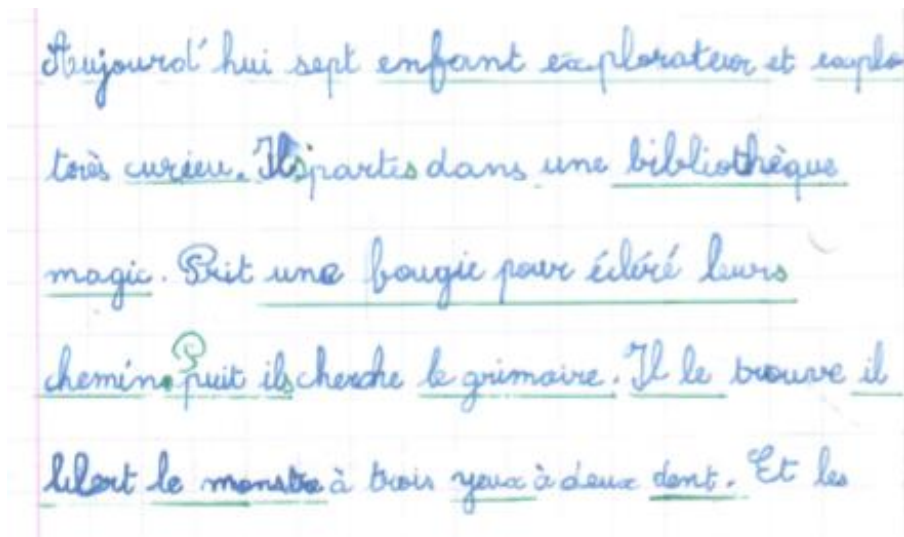 Aujourd'hui sept enfant explorateur et explo
très curieu. Ils partes dans une bibliothèque
magic. Prit une bougie pour écléré leurs
chemin. Puit ils cherche le grimoire. Il le trouve il
libert le monstre à trois yeux à deux dent. Et les